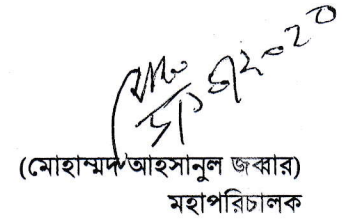 (মোহাম্মদ আহসানুল জব্বার)
মহাপরিচালক